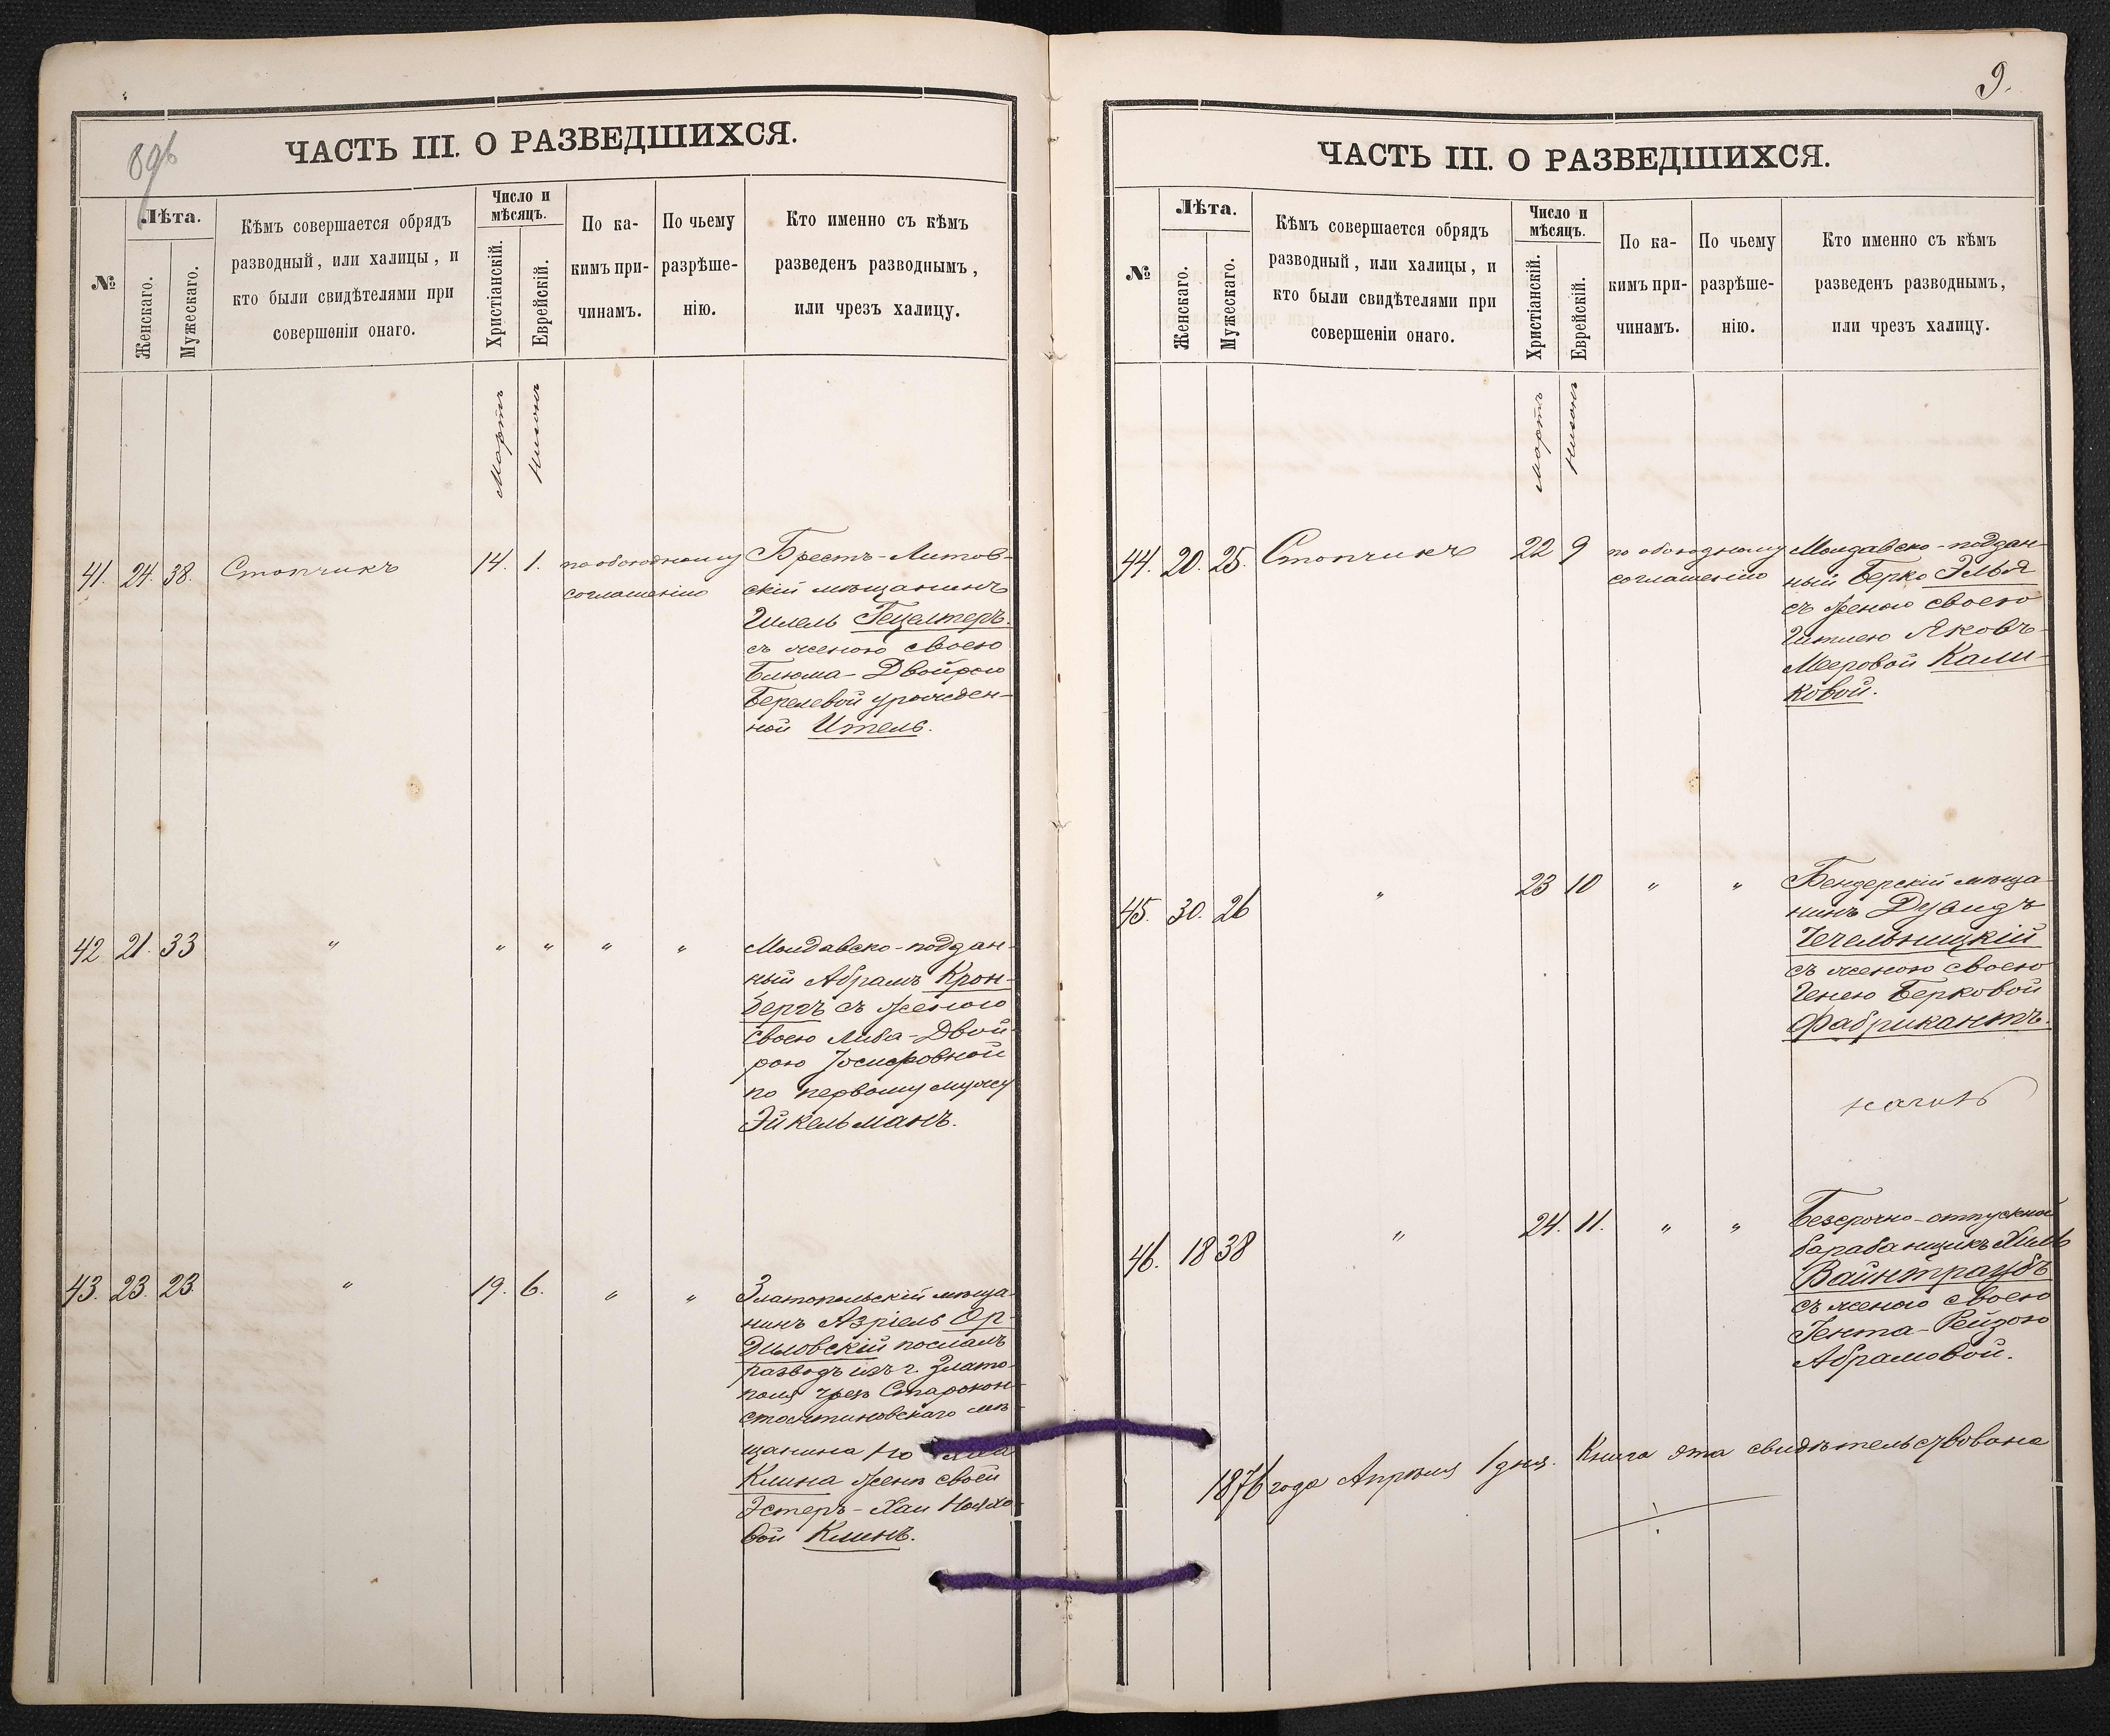 896
ЧАСТЬ III. О РАЗВЕДШИХСЯ.
№
Лѣта.
Женскаго.
Мужескаго.
Кѣмъ совершается обрядъ
разводный, или халицы, и
кто были свидѣтелями при
совершеніи онаго.
Число и
мѣсяцъ.
Христіанскій.
Еврейскій.
По ка-
кимъ при-
чинамъ.
По чьему
разрѣше-
нію.
Кто именно съ кѣмъ
разведенъ разводнымъ,
или чрезъ халицу.
Мартъ
Нисонъ
41. 24. 38. Стопчикъ 14. 1. по обоюдному
соглашенію
Брестъ-Литов-
скій мѣщанинъ
Гилель Гецелтеръ.
съ женою своею
Блюма-Двойрою
Берелевой урожден-
ной Итель.
42 21. 33 " " " " "
Молдавско-поддан-
ный Абрамъ Крон-
бергъ съ женою
своею Либа-Двой-
рою Іосифовной
по первому мужу
Эйкельманъ.
43. 23. 23. " 19. 6. " "
Златопольскій мѣща-
нинъ Азріель Ор-
диловскій послалъ
разводъ изъ г. Злато-
поля чрезъ Старокон-
стантиновскаго мѣ-
щанина
Клина женѣ своей
Эстеръ-Хаи
вой Клинъ.
9.
ЧАСТЬ III. О РАЗВЕДШИХСЯ.
№
Лѣта.
Женскаго.
Мужескаго.
Кѣмъ совершается обрядъ
разводный, или халицы, и
кто были свидѣтелями при
совершеніи онаго.
Число и
мѣсяцъ.
Христіанскій.
Еврейскій.
По ка-
кимъ при-
чинамъ.
По чьему
разрѣше-
нію.
Кто именно съ кѣмъ
разведенъ разводнымъ,
или чрезъ халицу.
Мартъ
Нисонъ
44. 20. 25. Стопчикъ 22 9 по обоюдному
соглашенію
Молдавско-поддан-
ный Берко Элья
съ женою своею
Гитлею Яковъ-
Меровой Кали-
ковой.
45. 30. 26 " 23 10 " "
Бендерскій мѣща-
нинъ Дувидъ
Чечельницкій
съ женою своею
Генею Берковой
Фабрикантъ.
46. 18 38 " 24. 11. " "
Безсрочно-отпускной
барабанщикъ Хиль
Вайнтраубъ
съ женою своею
Гента-Рейзою
Абрамовой.
1876 года Апрѣля 1 дня. Книга эта свидѣтельствована